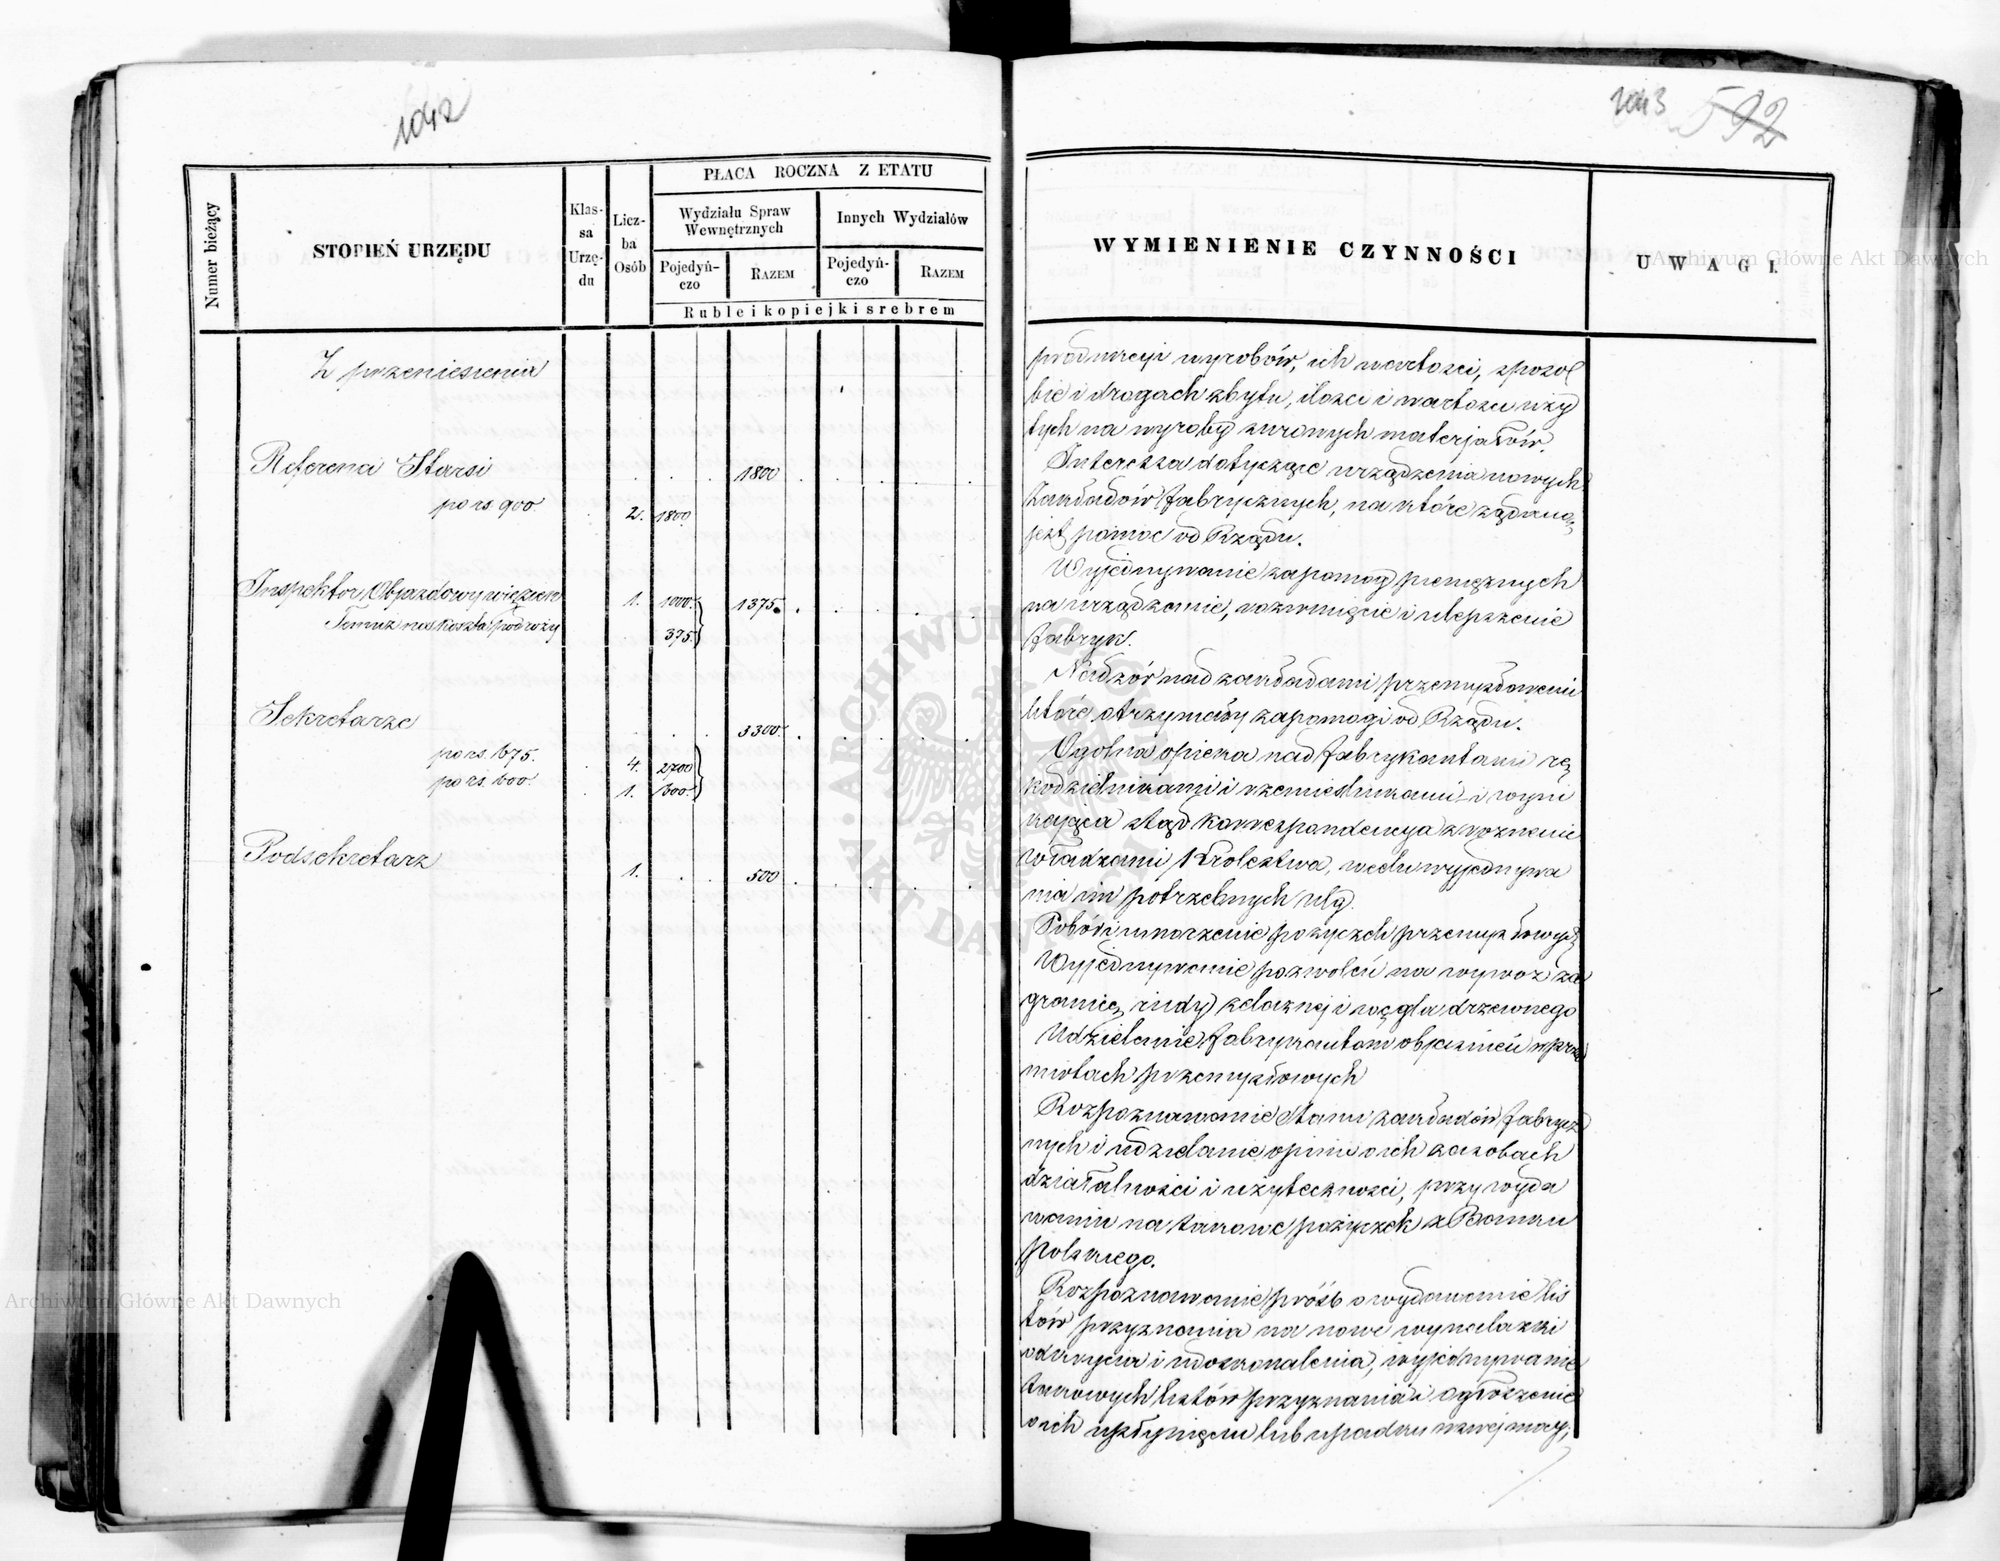 1042
PŁACA ROCZNA Z ETATU
Numer bieżący
STOPIEŃ URZĘDU
Klas-
sa
Urzę-
du
Licz-
ba
Osób
Wydziału Spraw
Wewnętrznych
Innych Wydziałów
Pojedyń-
czo
RAZEM
Pojedyń-
czo
RAZEM
Ruble i kopiejki srebrem
Z przeniesienia
Referenci Starsi . . . 1800 . . . .
po rs. 900. . 2. 1800.
Inspektor Objazdowy więzień 1. 1000. 1375. . . . .
Temuż na koszta podróży . 375.
Sekretarze . . . 3300. . . . .
po rs. 675. . 4. 2700
po rs. 600. . 1. 600.
Podsekretarz 1. . . 500 . . . .
1043 592
WYMIENIENIE CZYNNOŚCI
UWAGI.
produkcyi wyrobów, ich wartości, sposo
bie i drogach zbytu, ilości i wartości uży
tych na wyroby surowych materjałów.
Interessa dotyczące urządzenia nowych
Zakładów fabrycznych, na które żądaną
jest pomoc od Rządu.
Wyjednywanie zapomog pieniężnych
na urządzenie, rozwinięcie i ulepszenie
fabryk.
Nadzór nad zakładami przemysłowemi
które otrzymały zapomogi od Rządu.
Ogólna opieka nad fabrykantami rę
kodzielnikami i rzemieślnikami i wyni
kająca stąd korrespondencya z roznemi
władzami Królestwa, w celu wyjednywa
nia im potrzebnych ulg.
Pobór i umorzenie pożyczek przemysłowych
Wyjednywanie pozwoleń na wywoz za
granicę rudy żelaznej i węgla drzewnego
Udzielanie fabrykantom objaśnień w prze
miotach przemysłowych
Rozpoznawanie stanu zakładów fabrycz
nych i udzielanie opinii o ich zasobach
działalności i użyteczności, przy wyda
waniu na takowe pożyczek z Banku
Polskiego.
Rozpoznawanie próśb o wydawanie lis
tów przyznania na nowe wynalazki
odkrycia i udoskonalenia, wyjednywanie
takowych listów przyznania i ogłoszenie
o ich upłynięciu lub upadku w swej mocy,
Archiwum Główne Akt Dawnych
Archiwum Główne Akt Dawnych